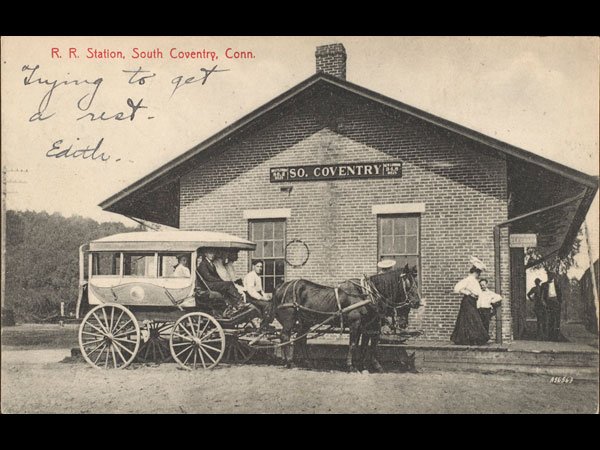 R. R. Station, South Coventry, Conn.
Trying to get
a rest.
Edith.
SO. COVENTRY
A56563